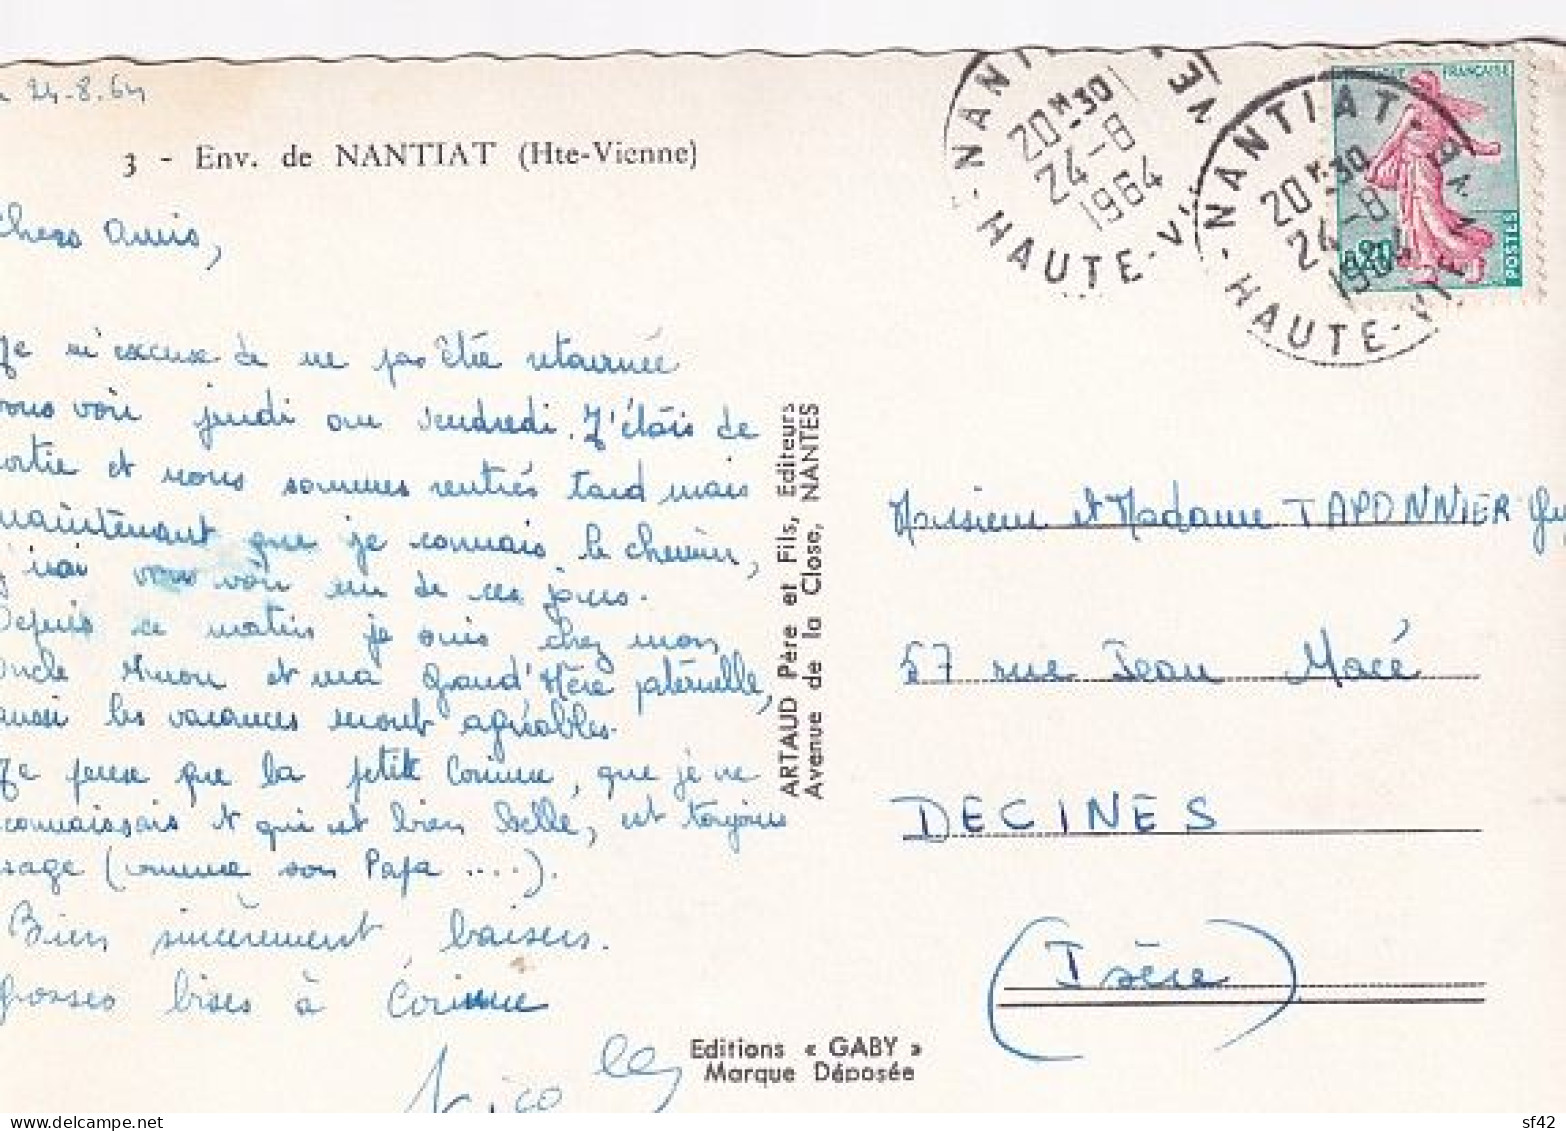 24-8.64
3 - Env. de NANTIAT (Hte-Vienne)
chers amis,
Je m'excuse de ne pas être retournée
vous voir jeudi ou vendredi. J'étais de
sortie et nous sommes rentrés tard mais
maintenant que je connais le chemin,
j'irai vous voir un de ces jours.
Depuis ce matin je suis chez mon
oncle Simon et ma Grand'Mère paternelle,
aussi les vacances seront agréables.
Je pense que la petite Corinne, que je ne
connaissais et qui est bien belle, est toujours
sage (comme son Papa ....).
Bien sincèrement baisers.
Grosses bises à Corinne
Nicole
ARTAUD Père et Fils, Editeurs
Avenue de la Close, NANTES
Editions « GABY »
Marque Déposée
NANTIAT
20H30
24-8
1964
HAUTE-V
NANTIAT
20H30
24-8
1964
HAUTE-VIENNE
FRANÇAISE
0,20
POSTES
Monsieur et Madame TAPONNIER Guy
57 rue Jean Macé
DECINES
(Isère)
sf42